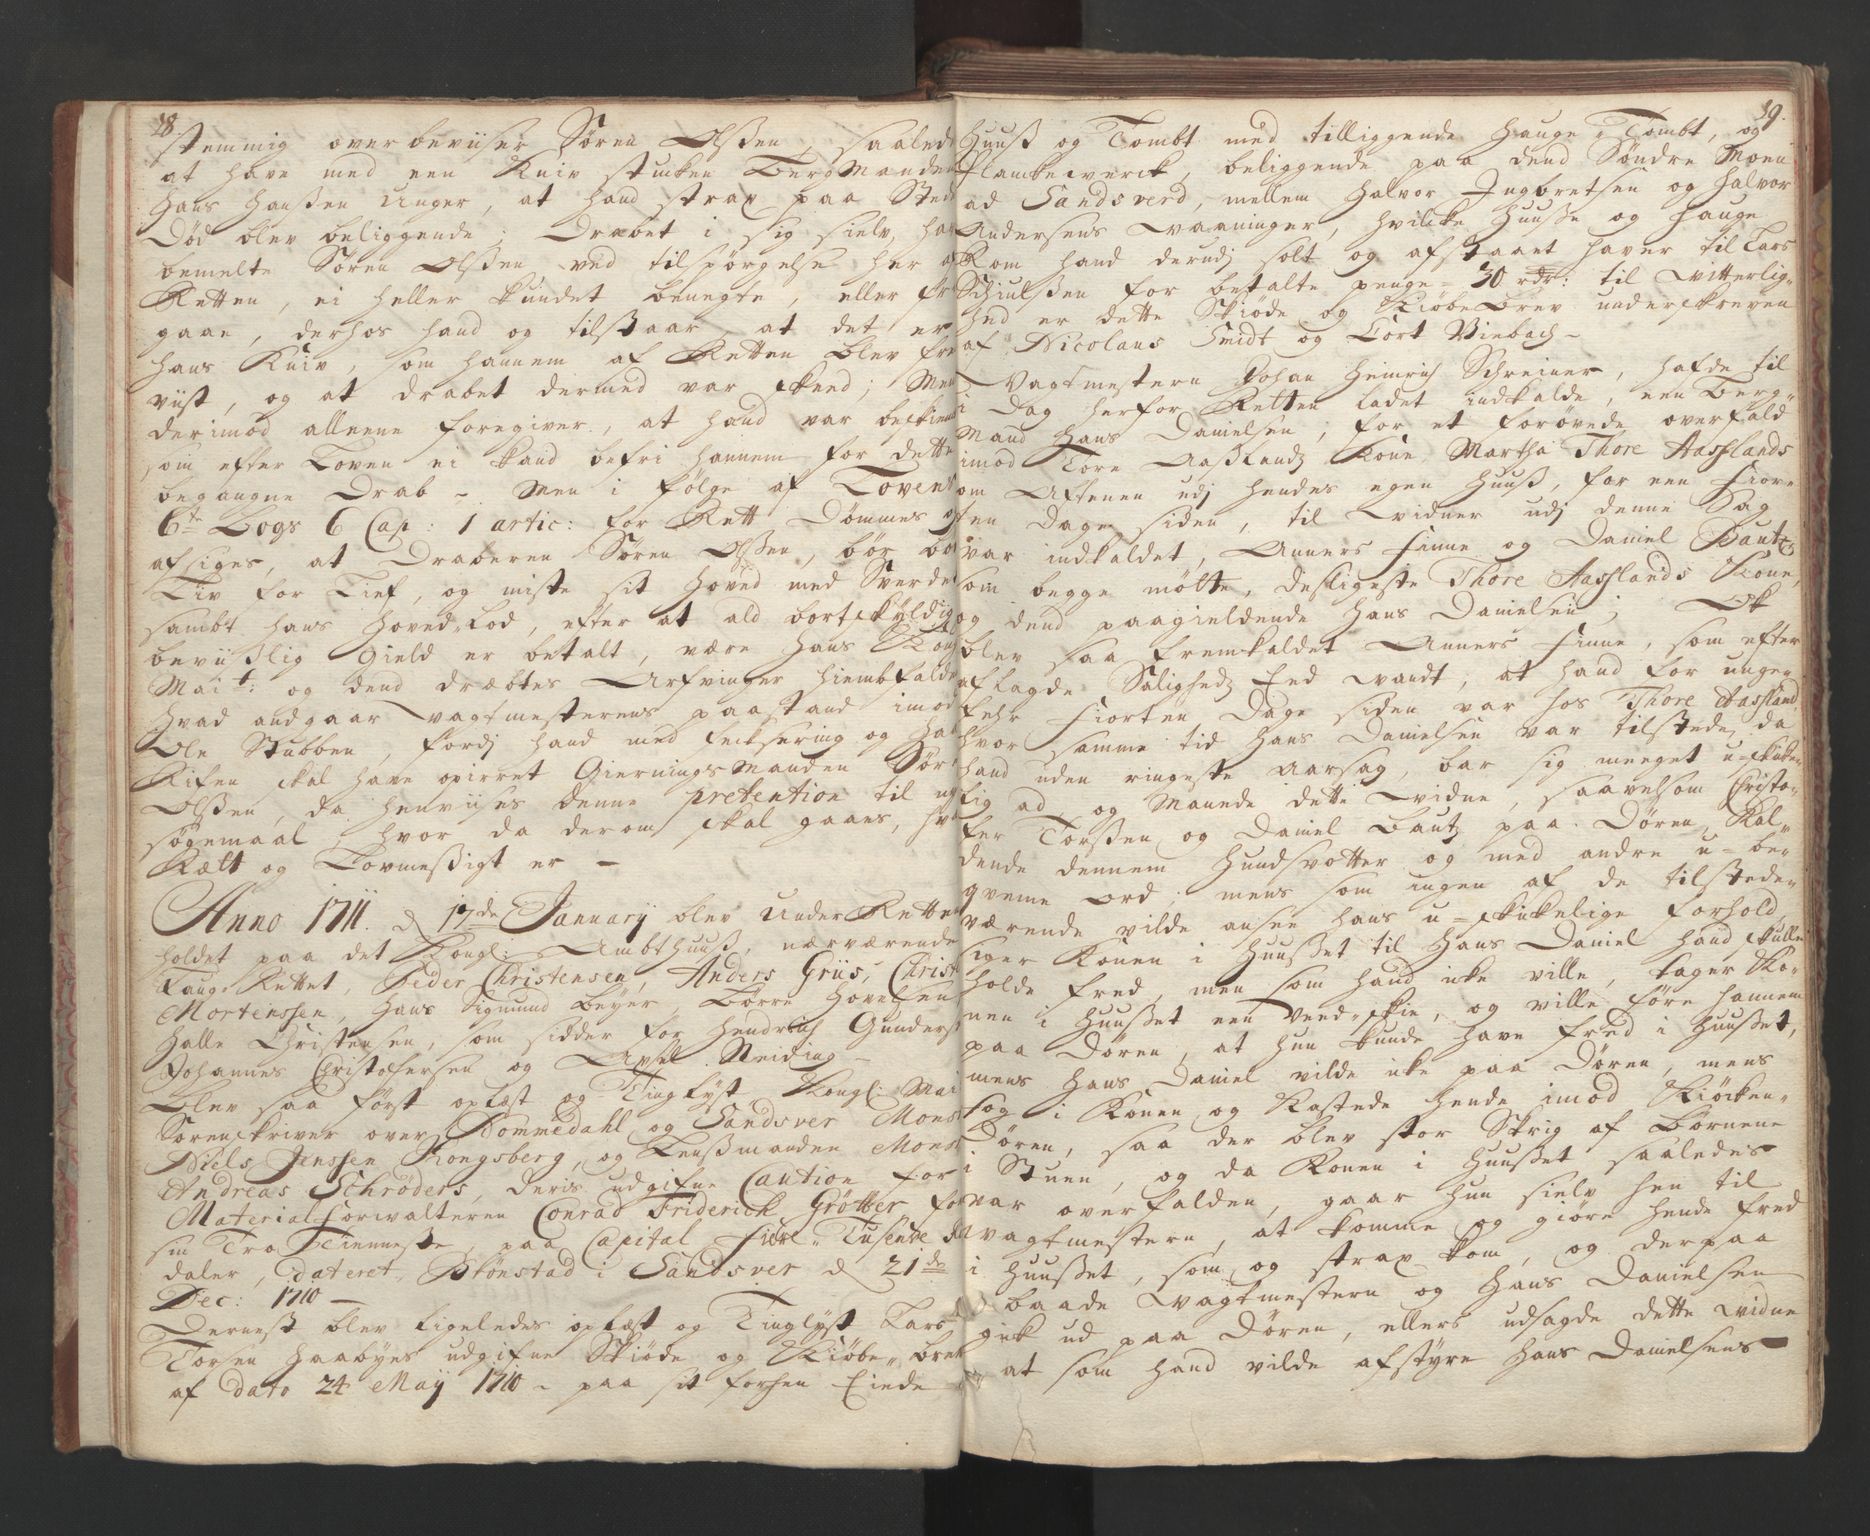 38.
stemmig overbeviiser Søren Olssen, saaleds
at have med een Kniv stucken BergManden
Hans Hanssen Unger, at hand strax paa Sted
Død blev beliggende; Drabet i sig sielv, ha
bemelte Søren Olssen ved tilspørgelse her
Retten, ei heller kundet benegte, eller fr
gaae, derhos hand og tilstaar, at det er
hans Kniv, som hannem af Retten blev fre
viist, og at drabet dermed var skeed; Men
derimod alleene foregiver, at hand var beskien
som efter Loven ei kand befri hannem for dette
begangne Drab - Men i følge af Lovens
6te Bogs 6 Cap: 1 artic: for Rett Dømmes og
afsiges, at Draberen Søren Olssen, bør bø
Liv for Lief, og miste sit Hoved med Sverdet
sambt hans Hoved-Lod, efter at ald bortskyldig
beviislig Gield er betalt, være Hans Kong
Mait: og dend dræbtes Arfvinger hiemfalden
Hvad andgaar Vagtmesterens paastand imod
Ole Stubben, fordj hand med fecksering og
Kifen skal have opirret GierningsManden Sør
Olssen, da henviises denne pretention til
søgemaal, hvor da derom skal gaaes, hv
Rætt og Lovmessigt er -
Anno 1711. d 17de January blev Under Retten
holdet paa det Kongl: Ambthuus, nærværende
Laug-Rettet, Peder Christensen, Anders Griis, Christ
Mortenssen, Hans Sigmund Beyer Børre Hovelsen
Halle Christensen, som sidder for Hendrich Gunders
Johannes Christophersen og Axel Neiding -
Blev saa først oplæst og Tinglyst, Kongl: Mai
Sorenskriver over Nommedahl og Sandsver Mons
Niels Jenssen Kongsberg, og Lensmanden Mons
Andreas Schrøders, deris udgifne Caution for
Materialforwalteren Conrad Friderich Grøtter, for
sin Tro Tienneste, paa Capital Fiire Tusende
daler, dateret, Skønstad i Sandsver d 21de
Dec: 1710 -
Dernest blev ligeledes oplæst og Tinglyst Lars
Torsen Haabyes udgifne Skiøde og Kiøbe-breb
af dato 24 Maij 1710 - paa sit forhen Eiede
39.
Huus og Tombt med tilliggende Hauge-Tombt, og
Planckewerck, beliggende paa dend Søndre Moen
ad Sandsverd, mellem Halvor Ingbretsen og Halvor
Andersens Vaaninger, hvilcke Huusse og Hauge
Rom hand derudj solt og afstaaet haver til Lars
Schiulssen for betalte penge - 30 rdr: til Vitterlig-
hed er dette Skiøde og Kiøbebrev underskreven
af Nicolaus Smidt og Cort Viebach -
Vagtmestern Johan Heinrich Schreiner, hafde til
i Dag herfor Retten ladet indkalde, een Berg-
Mand Hans Danielsen, for et forøvede overfald
imod Tore Aasslandz Kone, Martha Thore Aasslands
om Aftenen udj hendes egen Huus, for een fior-
ten Dage siden, til Vidner udj denne Sag
var indkaldet, Anners Finne og Daniel Bautz
som begge møtte, desligeste Thore Aasslands Kone,
og dend paagieldende Hans Danielsen; Ok
blev saa fremkaldet Anners Finne, som efter
aflagde Saligheds Eed vandt, at hand for unge-
fehr fiorten Dage siden var hos Thore Aassland,
hvor samme tid Hans Danielsen var tilstede, da
hand uden ringeste Aarsag, bar sig meeget u-skicke-
lig ad, og Manede dette Vidne, saavelsom Christo-
fer Torssen og Daniel Bautz paa Døren, Kal-
dende dennem Hundsvotter og med andre u-be-
qveme ord; mens som ingen af de tilstede-
værende vilde ansee hans u-skickelige forhold,
siger Konen i Huusset til Hans Daniel hand skulle
holde fred, men som hand icke ville, tager Ko-
nen i Huusset een Veed-skie, og ville føre hannem
paa Døren, at hun kunde have fred i Huusset,
mens Hans Daniel vilde icke paa Døren, mens
tog i Konen og Kastede hende imod Kiøcken-
Døren, saa der blev stor Skrig af Børnene
i Stuen, og da Konen i Huusset saaledes
var overfalden, gaar hun sielv hen til
Vagtmestern, at komme og giøre hende fred
i Huusset, som og strax kom, og derpaa
baade Vagtmestern og Hans Danielsen
gick ud paa Døren, ellers udsagde dette Vidne
at som hand vilde afstyre Hans Danielsens